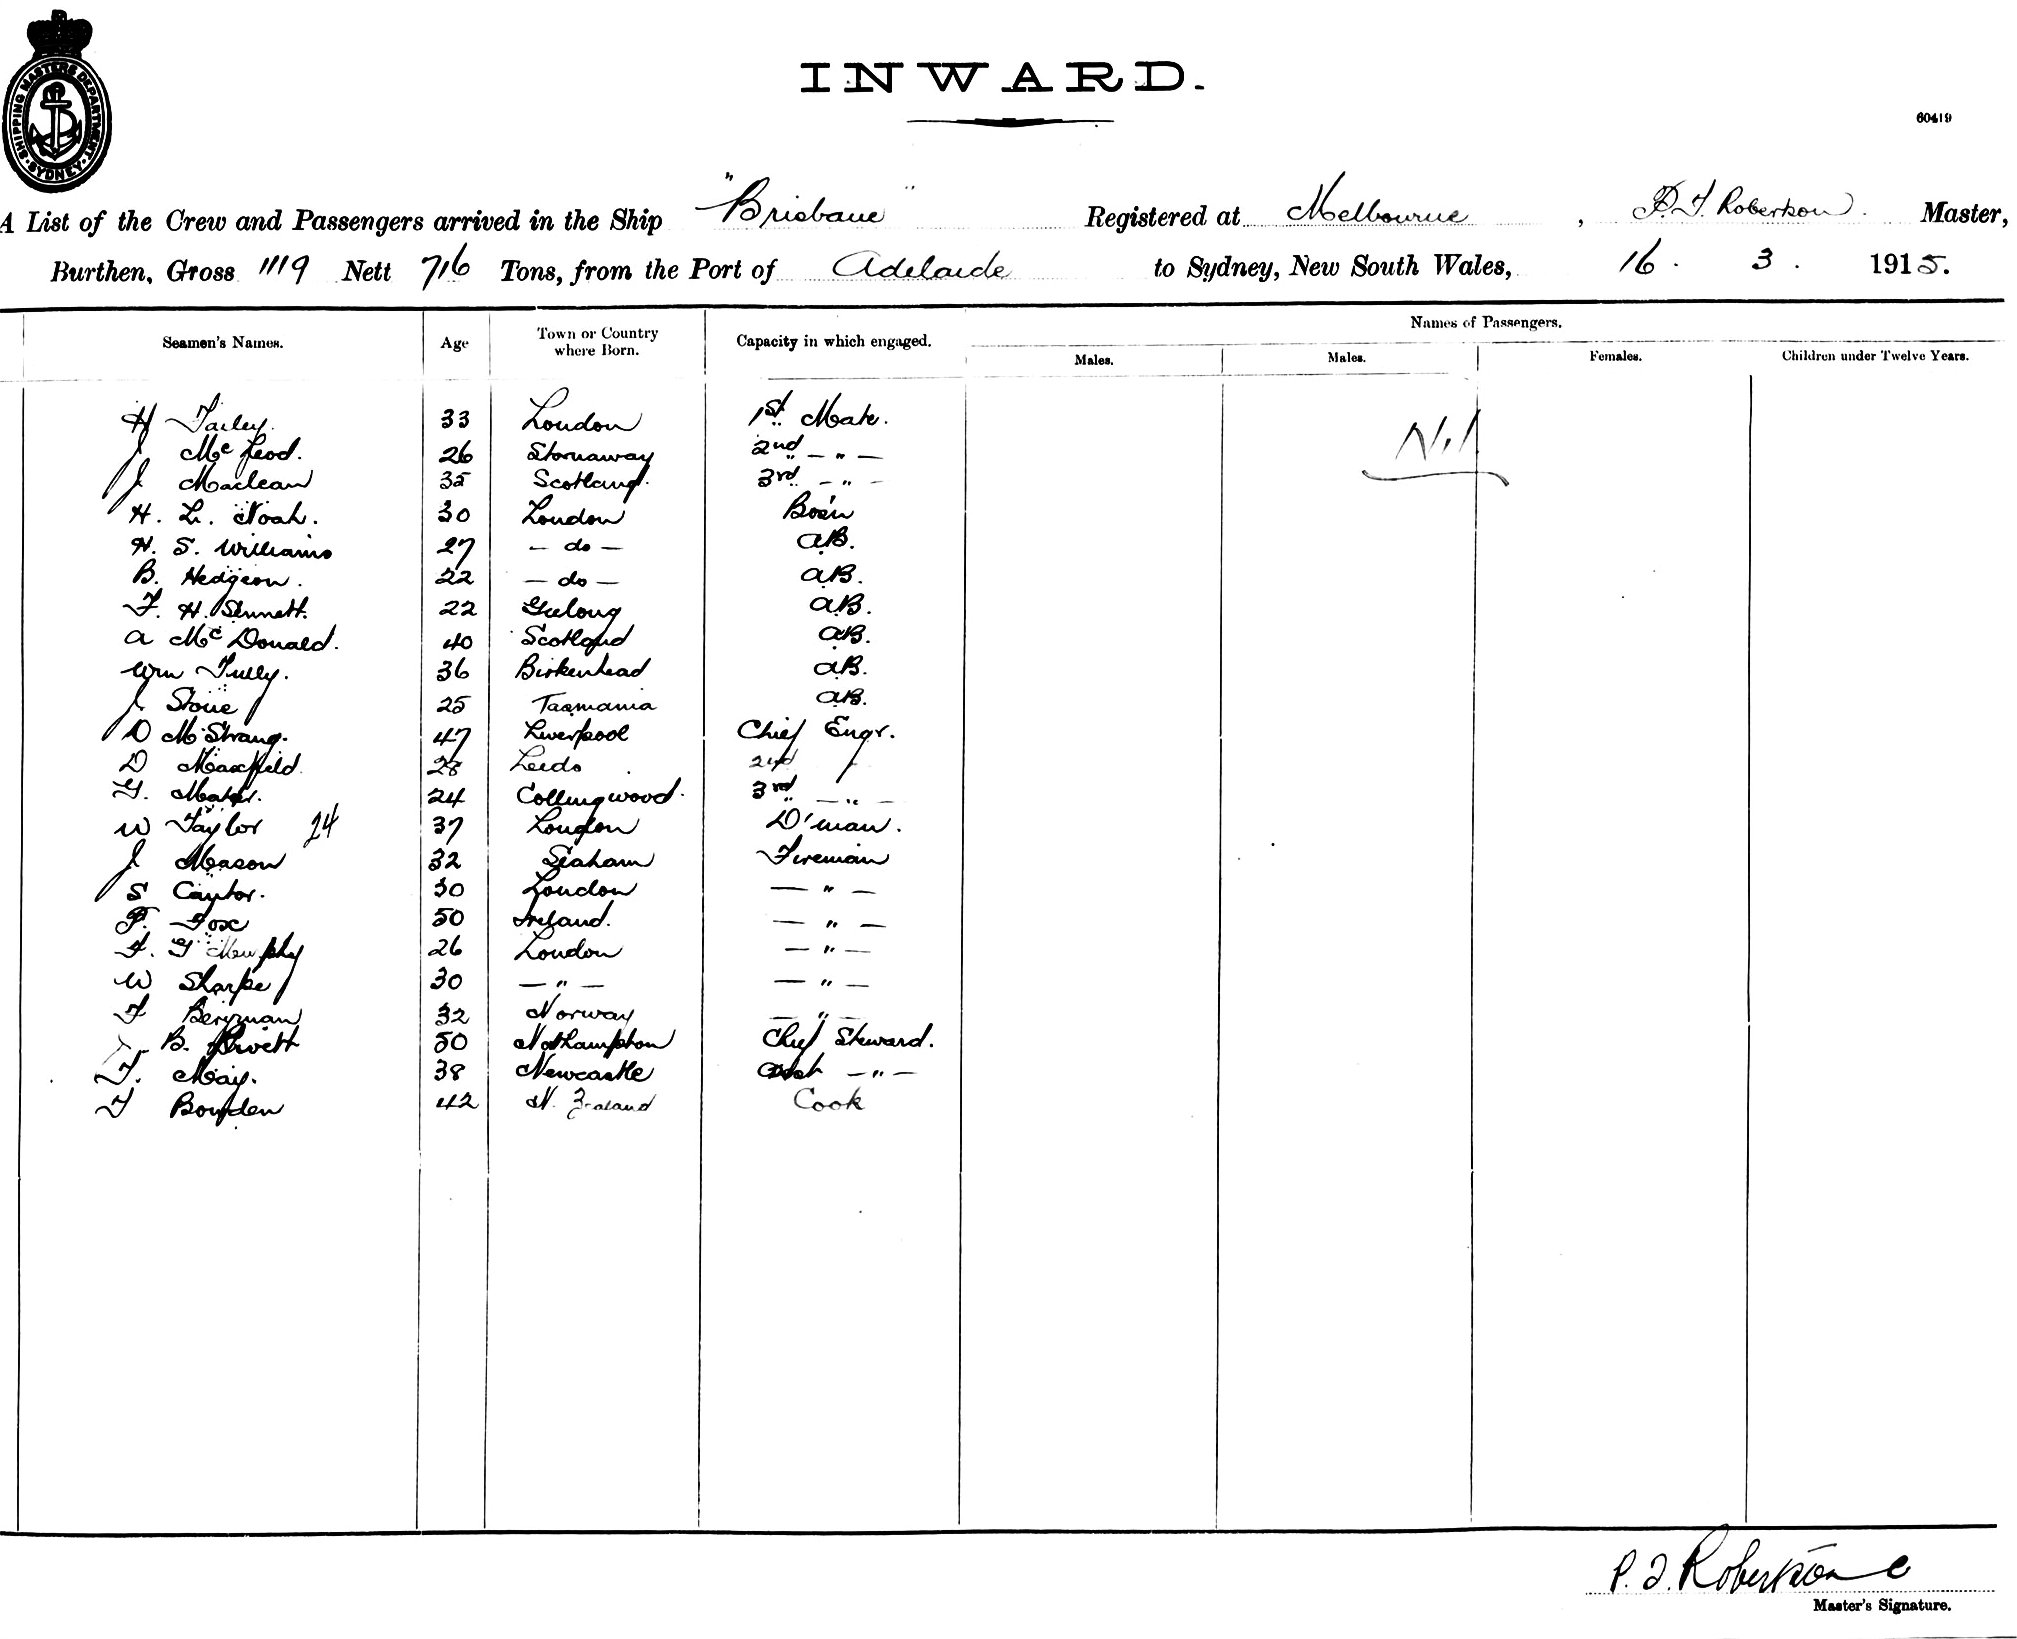 SHIPPING MASTERS DEPARTMENT
SYDNEY
INWARD.
60419
A List of the Crew and Passengers arrived in the Ship "Brisbane" Registered at Melbourne, P. J. Robertson. Master,
Burthen, Gross 1119 Nett 716 Tons, from the Port of Adelaide to Sydney, New South Wales, 16. 3. 1915.
Seamen's Names. Age Town or Country where Born. Capacity in which engaged. Names of Passengers.
Males. Males. Females. Children under Twelve Years.
H 33 London 1st Mate. Nil
J McLeod. 26 Stornaway 2nd — " —
J Maclean 35 Scotland. 3rd — " —
H. L. Noah. 30 London Bo'sn
H. S. Williams 27 — do — AB.
B. Hedgeon. 22 — do — AB.
F. H. Sennett. 22 Geelong AB.
A McDonald. 40 Scotland AB.
Wm Tully. 36 Birkenhead AB.
J Stone 25 Tasmania AB.
D McStrang. 47 Liverpool Chief Engr.
D Maxfield 28 Leeds 2nd
G. 24 Collingwood. 3rd — " —
W Taylor 24 37 London D'man.
J Mason 32 Seaham Fireman
S Cantor. 30 London — " —
P. Fox 50 Ireland. — " —
F. G 26 London — " —
W Sharpe 30 — " — — " —
F 32 Norway — " —
B. 50 Northampton Chief Steward.
F. May. 38 Newcastle — " —
F Bowden 42 N. Zealand Cook
P. J. Robertson
Master's Signature.